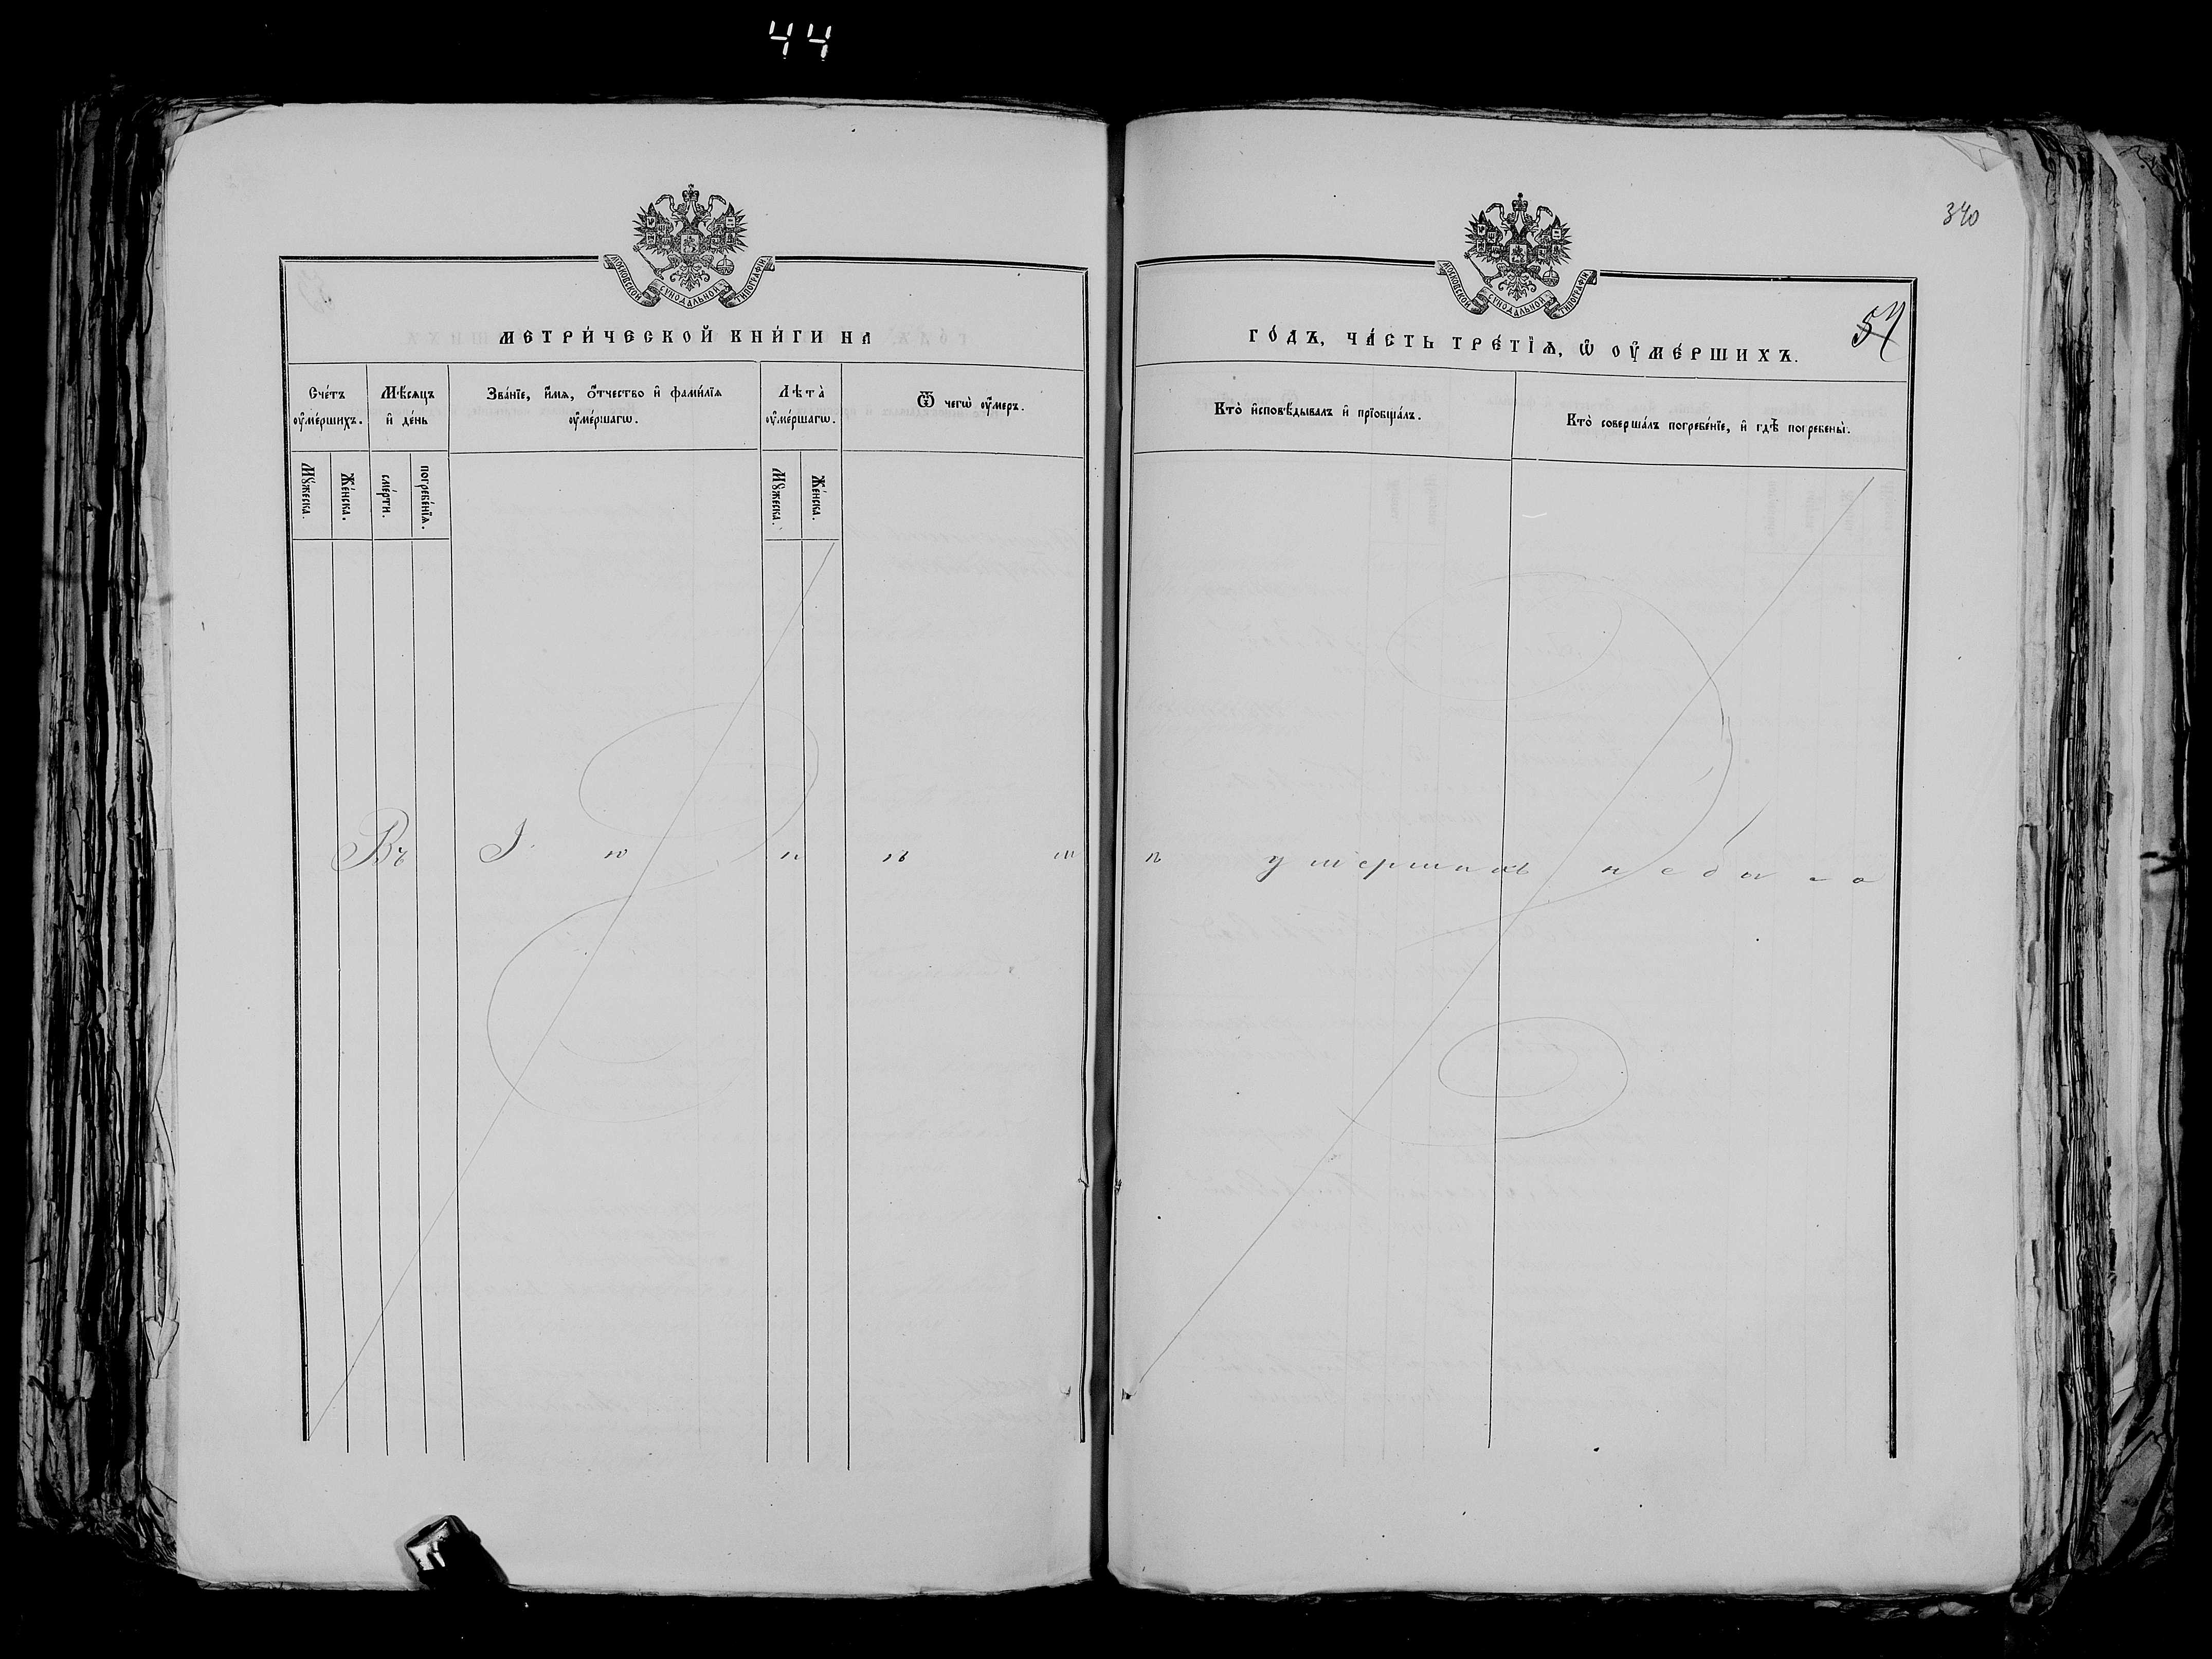 44
МОСКОВСКОЙ СѴНОДАЛЬНОЙ ТИПОГРАФІИ
МЕТРИ́ЧЕСКОЙ КНИ́ГИ НА
Сче́тъ ᲂу҆ме́ршихъ.
Мѣ́сяцъ и҆ де́нь
Зва́нїе, и҆́мѧ, ѻ҆́тчество и҆ фами́лїѧ
ᲂу҆ме́ршагѡ.
Лѣта̀ ᲂу҆ме́ршагѡ.
Ѿ чегѡ̀ ᲂу҆́меръ.
Мꙋ́жеска.
Же́нска.
сме́рти.
погребе́нїѧ.
Мꙋ́жеска.
Же́нска.
340
МОСКОВСКОЙ СѴНОДАЛЬНОЙ ТИПОГРАФІИ
57
ГО́ДЪ, ЧА́СТЬ ТРЕ́ТЇѦ, Ѡ҆ ОУ҆МЕ́РШИХЪ.
Кто̀ и҆сповѣ́дывалъ и҆ прїобща́лъ.
Кто̀ соверша́лъ погребе́нїе, и҆ гдѣ̀ погребены̀.
Въ Iюнѣ мѣ умершихъ небыло